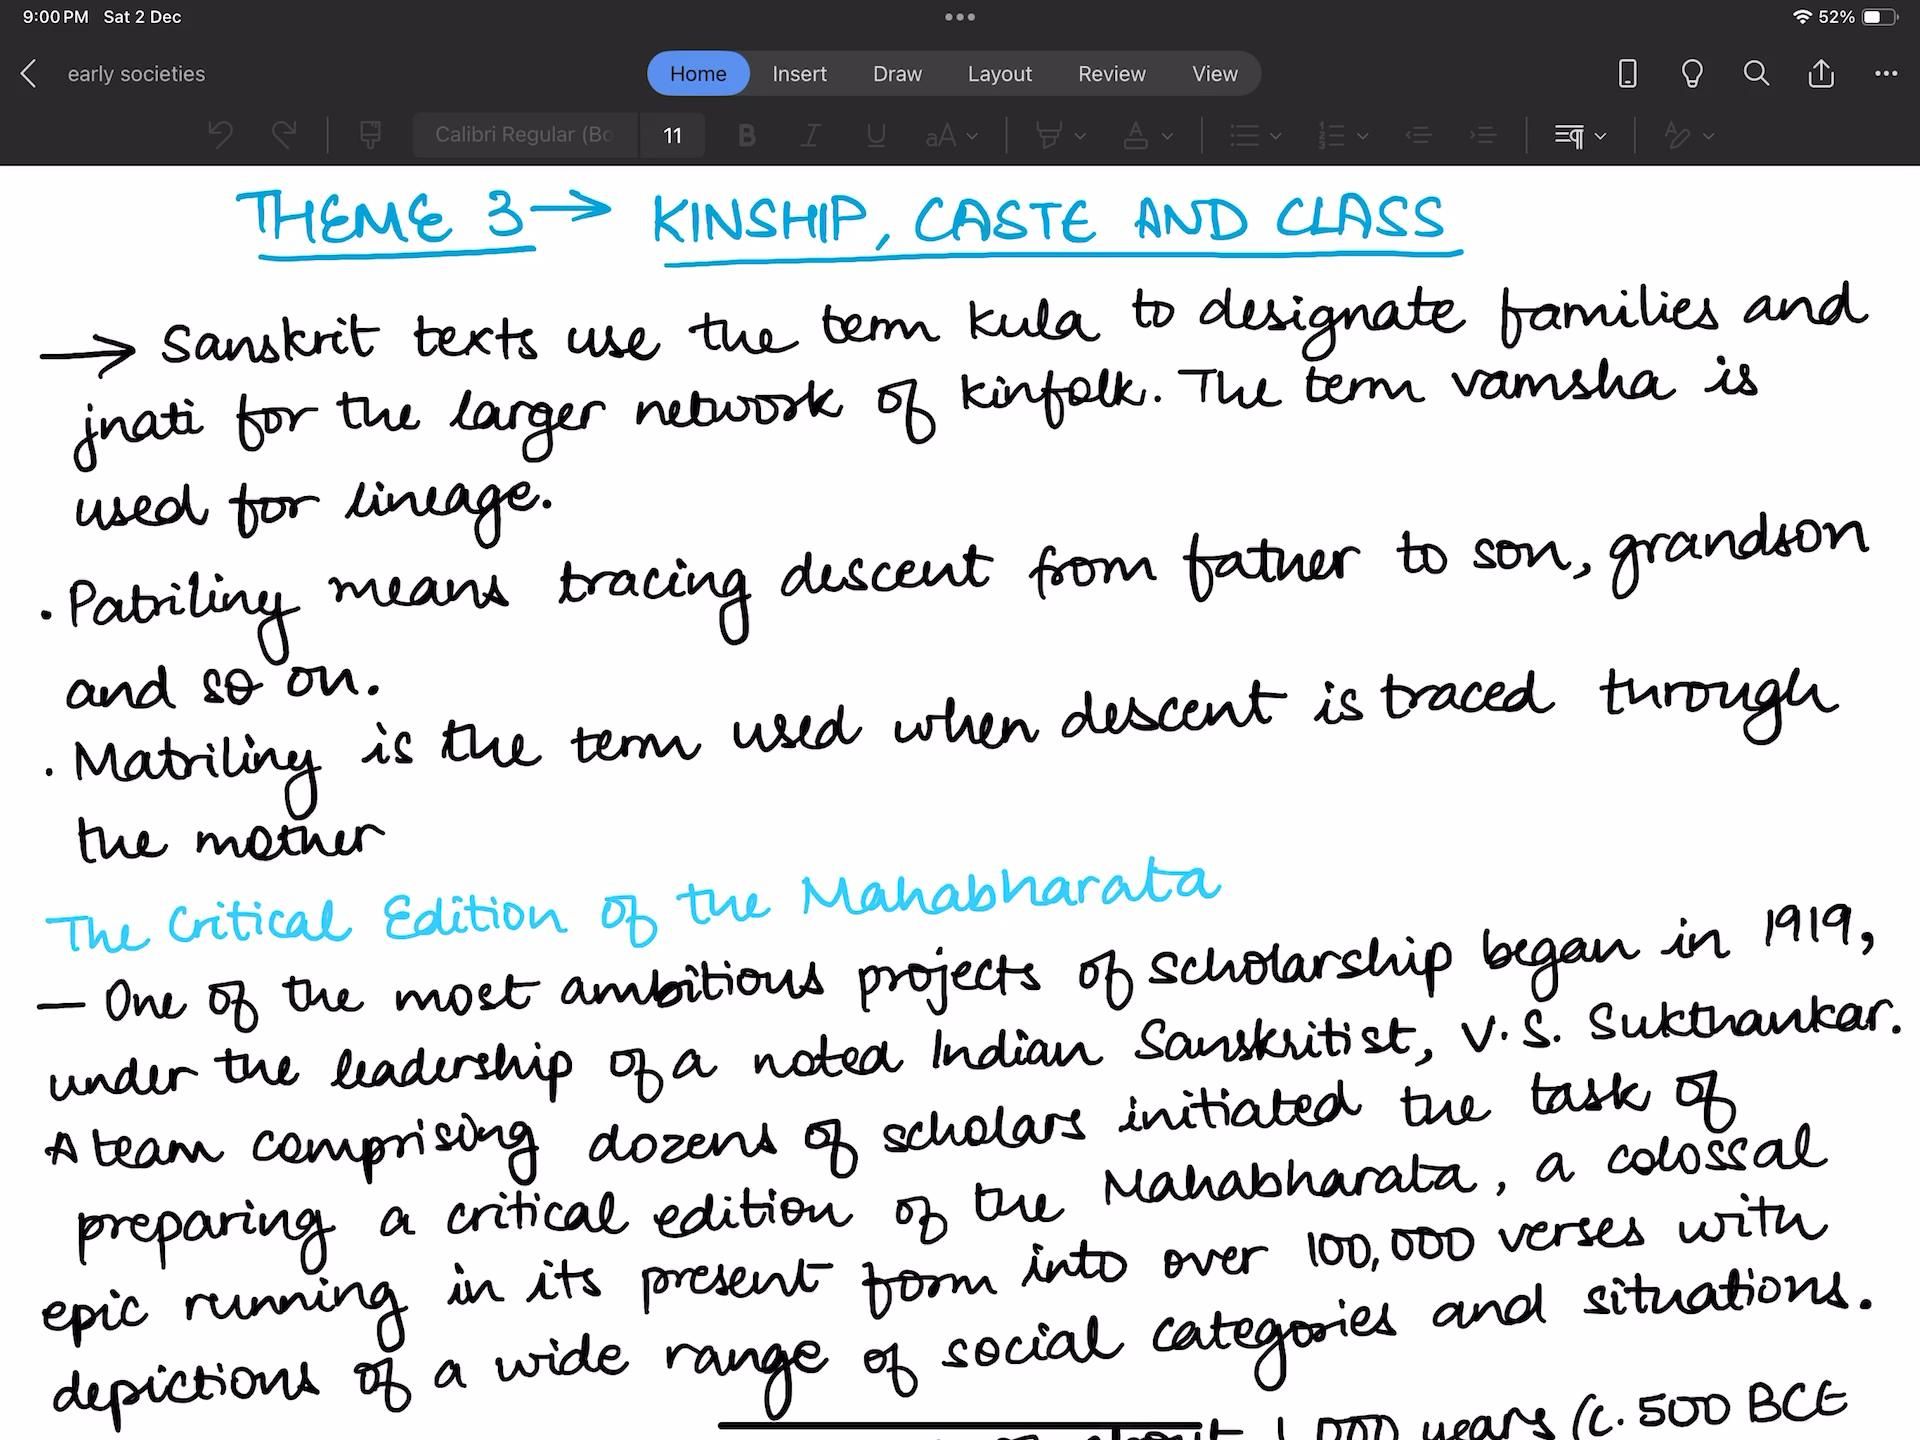 9:00 PM Sat 2 Dec
52%
early societies
Home Insert Draw Layout Review View
Calibri Regular (Bo 11 B I U aA A
THEME 3 → KINSHIP, CASTE AND CLASS
→ Sanskrit texts use the term kula to designate families and
jnati for the larger network of kinfolk. The term vamsha is
used for lineage.
. Patriliny means tracing descent from father to son, grandson
and so on.
. Matriliny is the term used when descent is traced through
the mother
The Critical Edition of the Mahabharata
— One of the most ambitious projects of scholarship began in 1919,
under the leadership of a noted Indian Sanskritist, V.S. Sukthankar.
A team comprising dozens of scholars initiated the task of
preparing a critical edition of the Mahabharata, a colossal
epic running in its present form into over 100,000 verses with
depictions of a wide range of social categories and situations.
1,000 years (c. 500 BCE